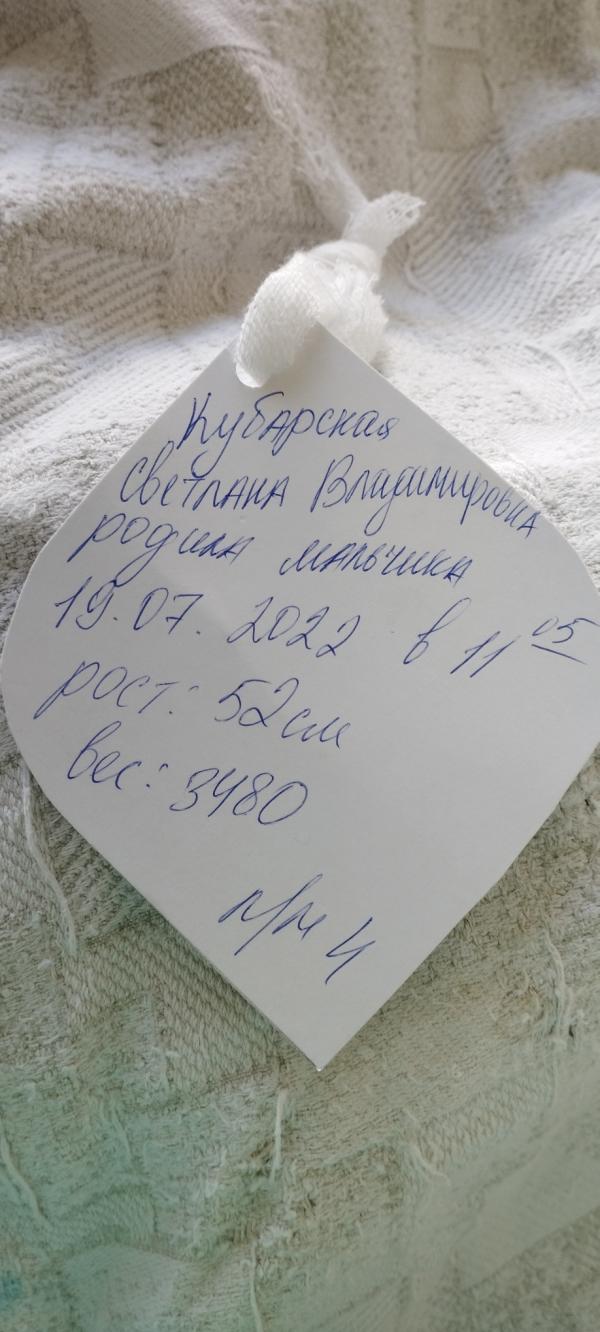 Кубарская
Светлана Владимировна
родила мальчика
19.07.2022 в 11 05
рост: 52 см
вес: 3480